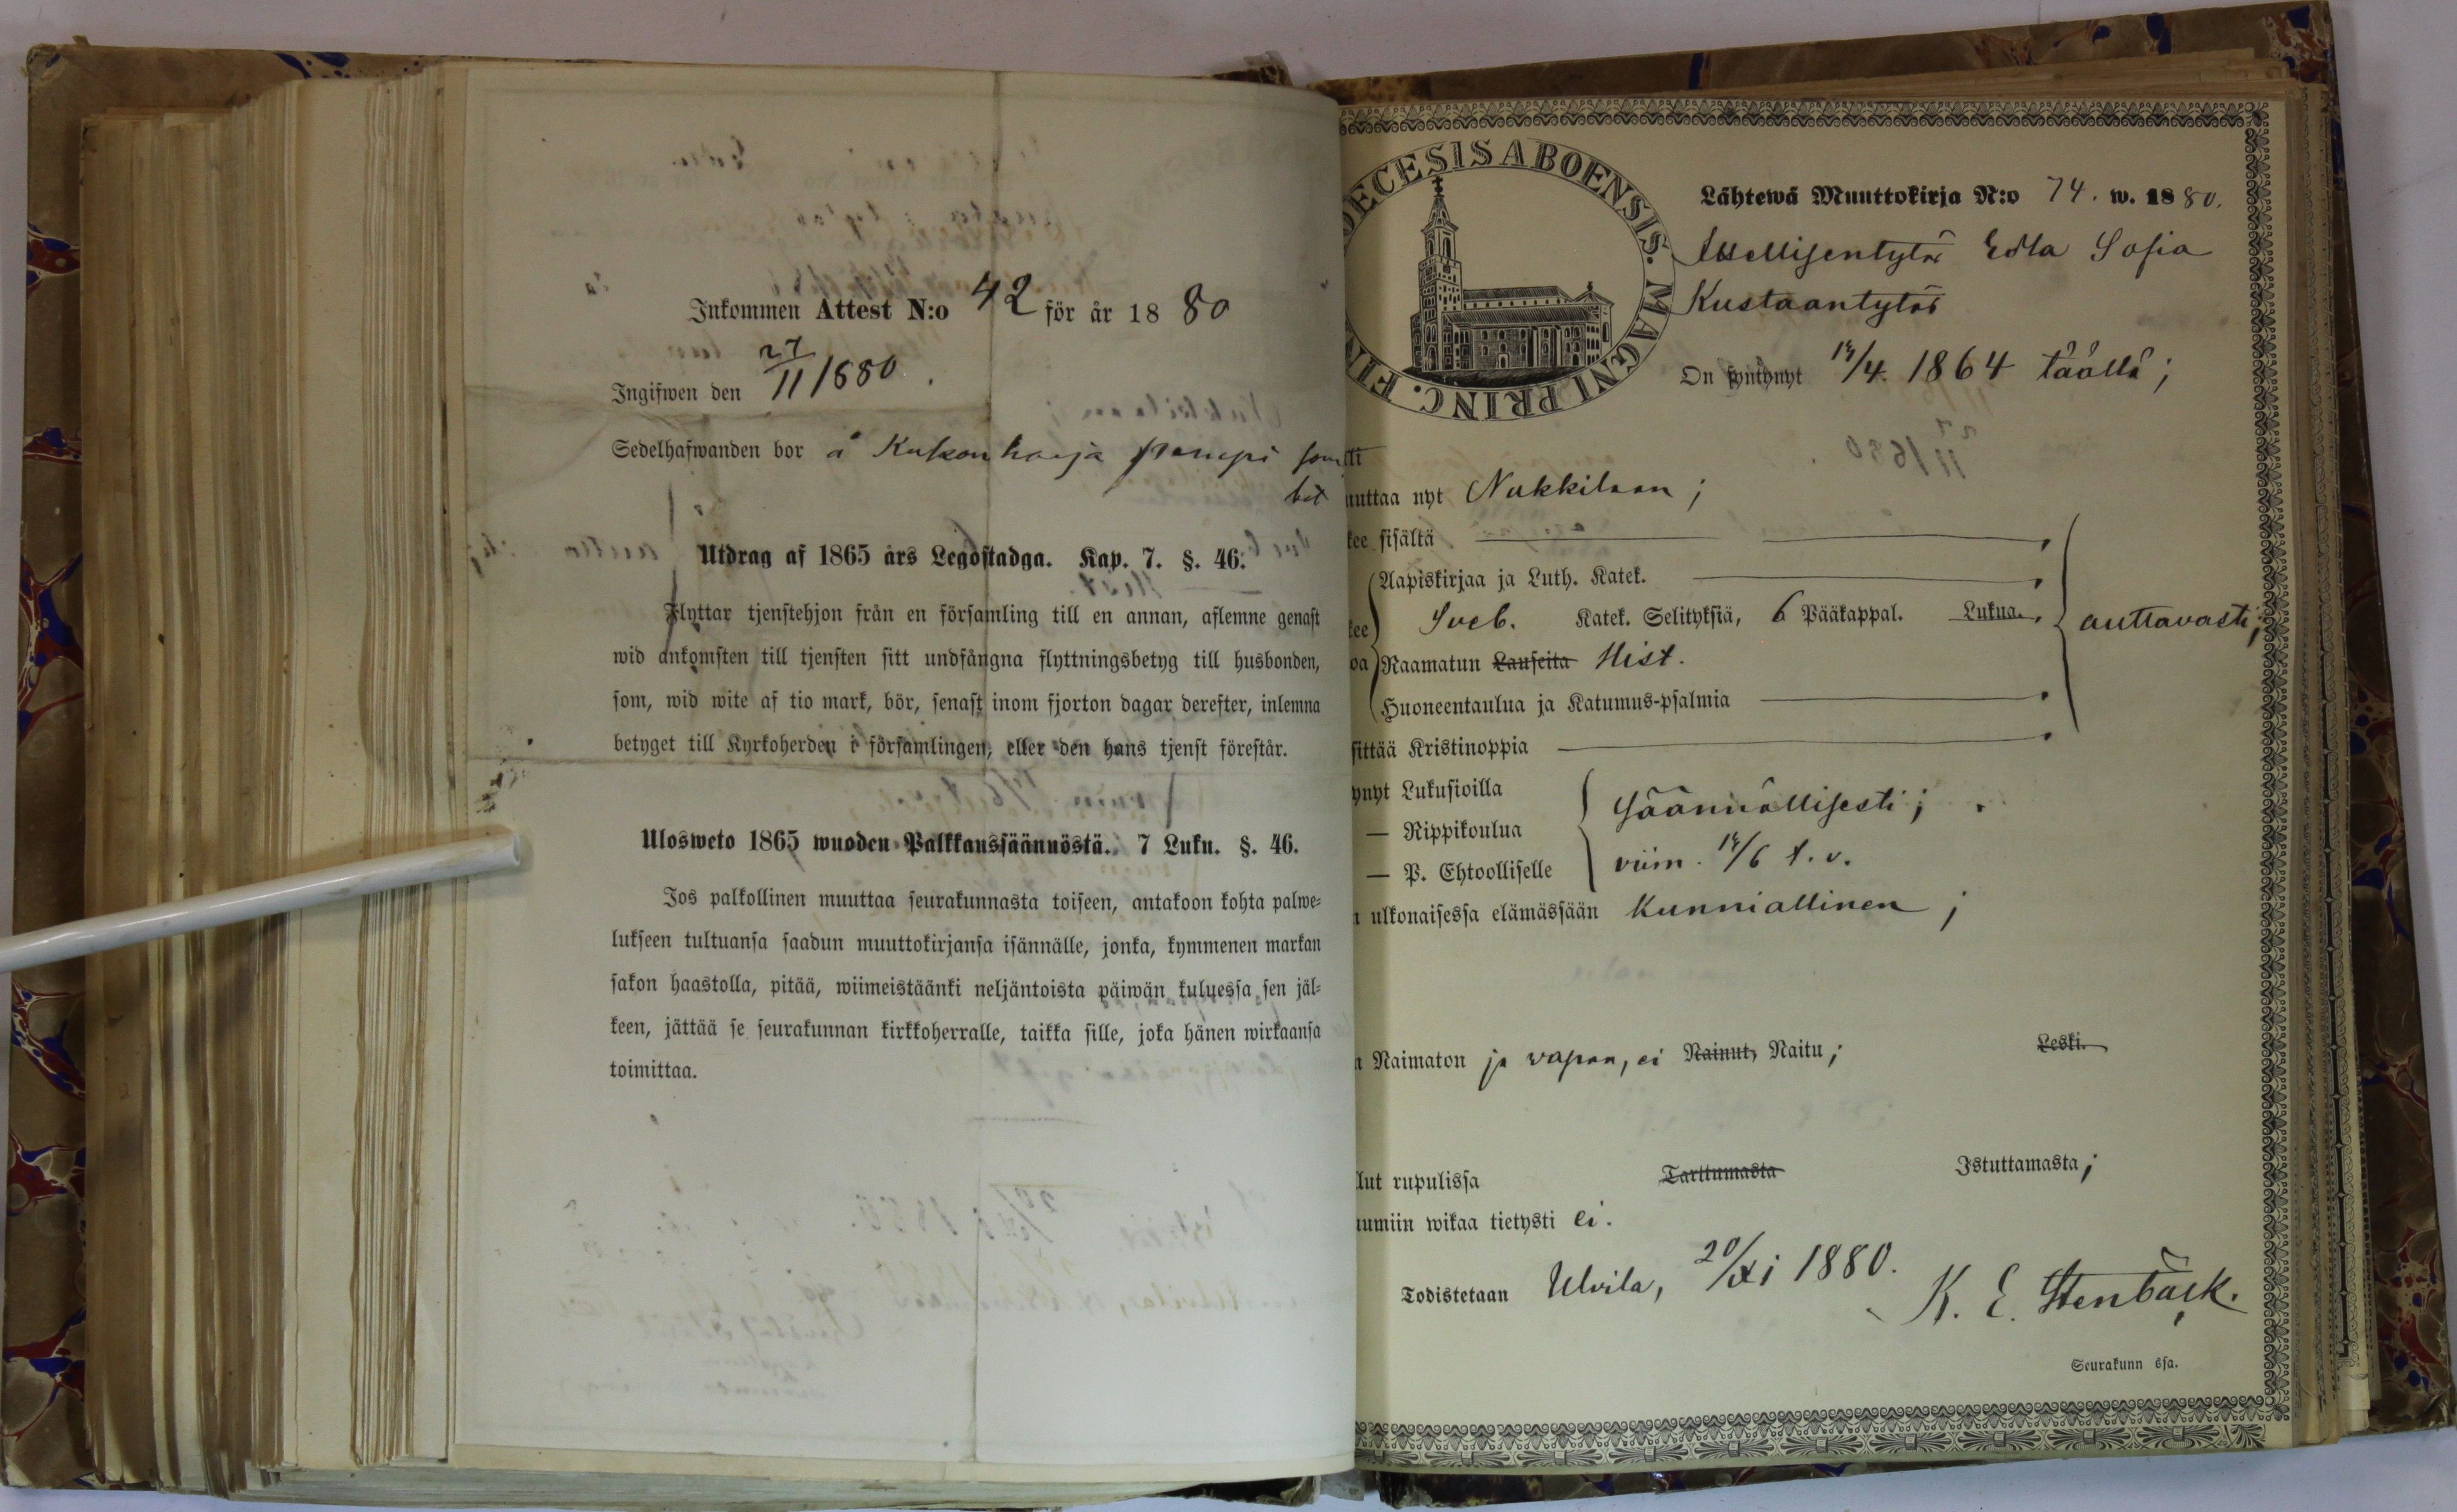 Inkommen Attest N:o 42 för år 1880
Ingifwen den 27/11 1880.
Sedelhafwanden bor å Kukonharja
Utdrag af 1865 års Legostadga. Kap. 7. §. 46.
Flyttar tjenstehjon från en församling till en annan, aflemne genast
wid ankomsten till tjensten sitt undfångna flyttningsbetyg till husbonden,
som, wid wite af tio mark, bör, senast inom fjorton dagar derefter, inlemna
betyget till Kyrkoherden i församlingen, eller den hans tjenst förestår.
Ulosweto 1865 wuoden Palkkaussäännöstä. 7 Luku. §. 46.
Jos palkollinen muuttaa seurakunnasta toiseen, antakoon kohta palwe=
lukseen tultuansa saadun muuttokirjansa isännälle, jonka, kymmenen markan
sakon haastolla, pitää, wiimeistäänki neljäntoista päiwän kuluessa sen jäl=
keen, jättää se seurakunnan kirkkoherralle, taikka sille, joka hänen wirkaansa
toimittaa.
DECESIS ABOENSIS. MAGNI PRINC. FIN
Lähtewä Muuttokirja N:o 74. w. 1880.
Itsellisentytär Edla Sofia
Kustaantytär
On syntynyt 14/4. 1864 täällä;
uuttaa nyt Nakkilaan;
kee sisältä
Aapiskirjaa ja Luth. Katek.
Sveb. Katek. Selityksiä, 6 Pääkappal. Lukua. auttavasti;
Raamatun Lauseita Hist.
Huoneentaulua ja Katumus-psalmia
sittää Kristinoppia
ynyt Lukusioilla
— Rippikoulua Säännöllisesti;
— P. Ehtoolliselle viim. 14/6 t. v.
n ulkonaisessa elämässään Kunniallinen;
n Naimaton ja vapaa, ei Nainut, Naitu; Leski.
lut rupulissa Tarttumasta Istuttamasta;
uumiin wikaa tietysti ei.
Todistetaan Ulvila, 20/xi 1880.
K. E. Stenbäck.
Seurakunn ssa.